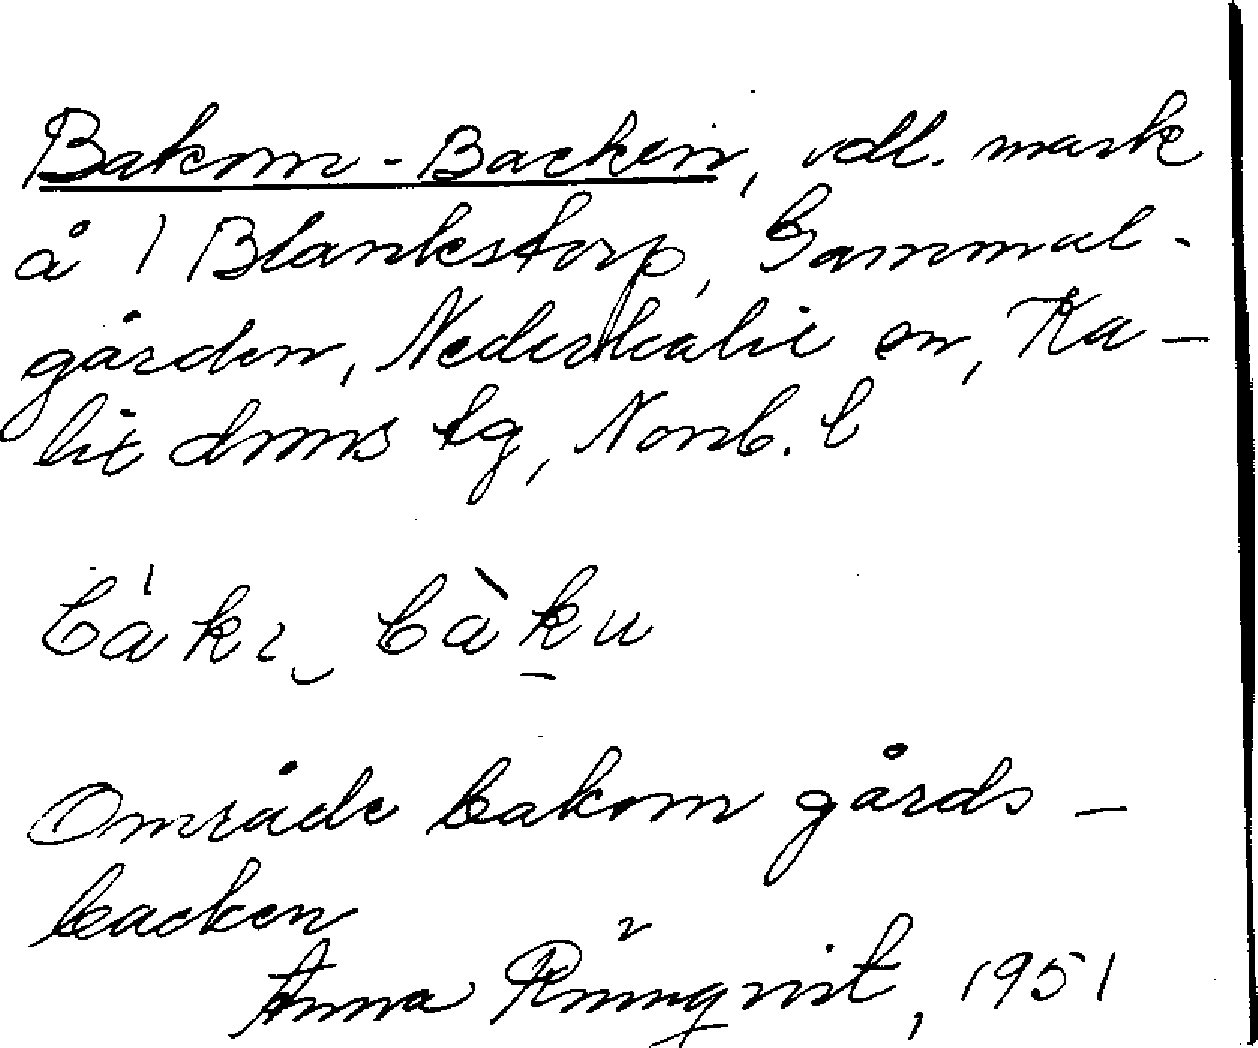 Bakom-Backen, odl. mark
å 1 Blankstorp, Gammal-
gården, Nederkalix sn, Ka-
lix dms tg, Norrb. l
Område bakom gårds-
backen
Anna Rönnqvist, 1951